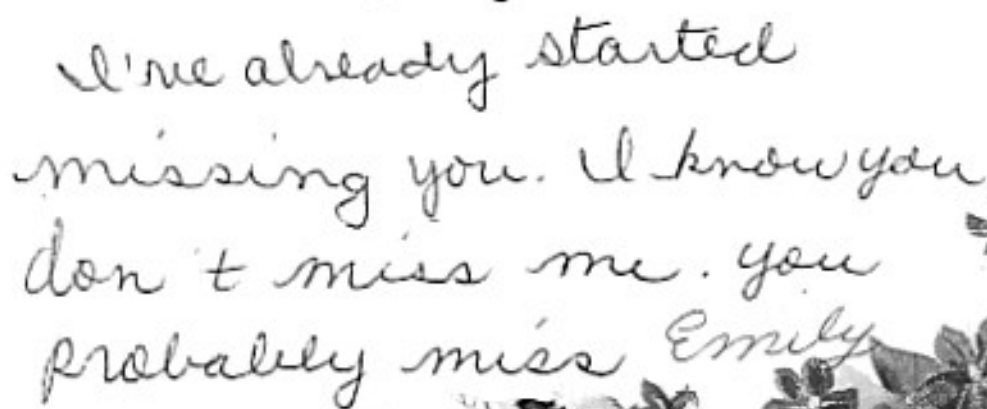 I've already started
missing you. I know you
don't miss me. you
probably miss Emily